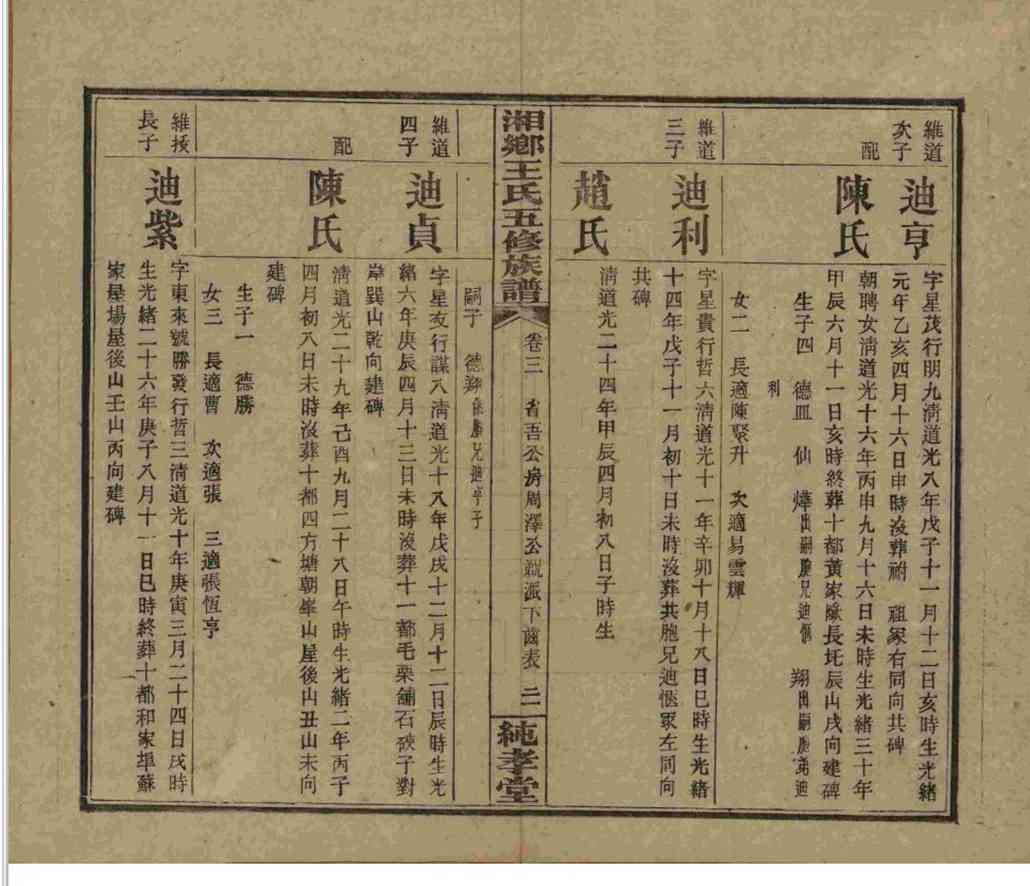 維道
次子
迪亨
字星茂行明九淸道光八年戊子十一月十二日亥時生光緒
元年乙亥四月十六日申時沒葬祔 祖冢右同向共碑
配
陳氏
朝聘女淸道光十六年丙申九月十六日未時生光緒三十年
甲辰六月十一日亥時終葬十都黃家隊長圫辰山戌向建碑
生子四 德皿 仙 燁出嗣胞兄迪愜 翔出嗣胞弟迪
利
女二 長適陳聚升 次適易雲輝
維道
三子
迪利
字星貴行哲六淸道光十一年辛卯十月十八日巳時生光緒
十四年戊子十一月初十日未時沒葬共胞兄迪愜冢左同向
共碑
趙氏
淸道光二十四年甲辰四月初八日子時生
湘鄉王氏五修族譜
卷三 省吾公房周澤公 派下齒表 二
純孝堂
嗣子 德翔係胞兄迪亨子
維道
四子
迪貞
字星友行謀八淸道光十八年戊戌十二月十二日辰時生光
緒六年庚辰四月十三日未時沒葬十一都毛栗舖石硤子對
岸巽山乾向建碑
配
陳氏
淸道光二十九年己酉九月二十八日午時生光緒二年丙子
四月初八日未時沒葬十都四方塘朝峯山屋後山丑山未向
建碑
生子一 德勝
女三 長適曹 次適張 三適張恆亨
維掞
長子
迪紫
字東來號勝發行哲三淸道光十年庚寅三月二十四日戌時
生光緒二十六年庚子八月十一日巳時終葬十都和家埠蘇
家屋場屋後山壬山丙向建碑